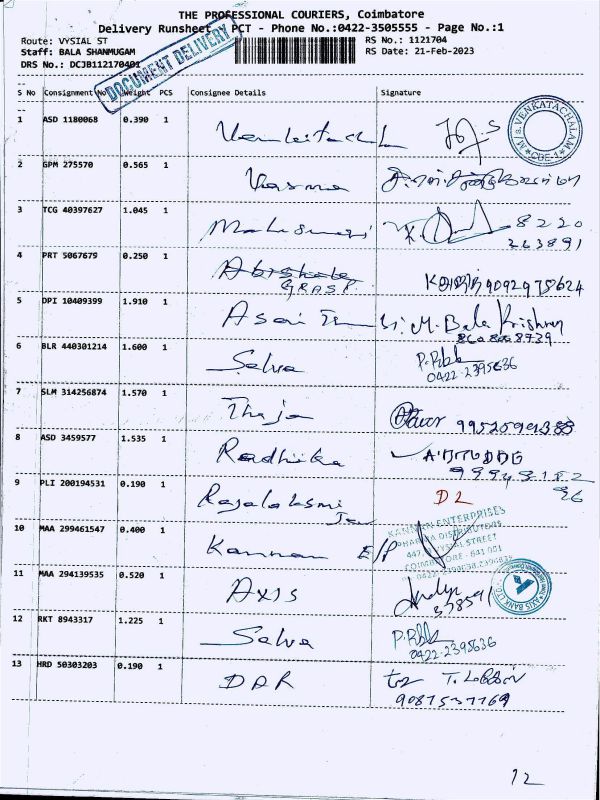 THE PROFESSIONAL COURIERS, Coimbatore
Delivery Runsheet PCT - Phone No.:0422-3505555 - Page No.:1
Route: VYSIAL ST
RS No.: 1121704
Staff: BALA SHANMUGAM
RS Date: 21-Feb-2023
DRS No.: DCJB112170401
DOCUMENT DELIVERY
S No Consignment No Weight PCS Consignee Details Signature
1 ASD 1180068 0.390 1 Venkitachala
M/s.VENKATACHALAM
CBE-1
2 GPM 275570 0.565 1
3 TCG 40397627 1.045 1 8220
263891
4 PRT 5067679 0.250 1 9092975624
GRASP
5 DPI 10409399 1.910 1 M. Bala Krishnan
6 BLR 440301214 1.600 1 Selva
0422-2395636
7 SLM 314256874 1.570 1 Thaja
8 ASD 3459577 1.535 1 Radhika
9 PLI 200194531 0.190 1 Rajalakshmi D2
96
10 MAA 299461547 0.400 1 Kannan E/P
KANNAN ENTERPRISES
PHARMA DISTRIBUTORS
VYSIAL STREET
COIMBATORE - 641 001
11 MAA 294139535 0.520 1 AXIS
378591
AXIS BANK LTD
12 RKT 8943317 1.225 1 Selva
0422-2395636
13 HRD 50303203 0.190 1 DAR
9087537769
12